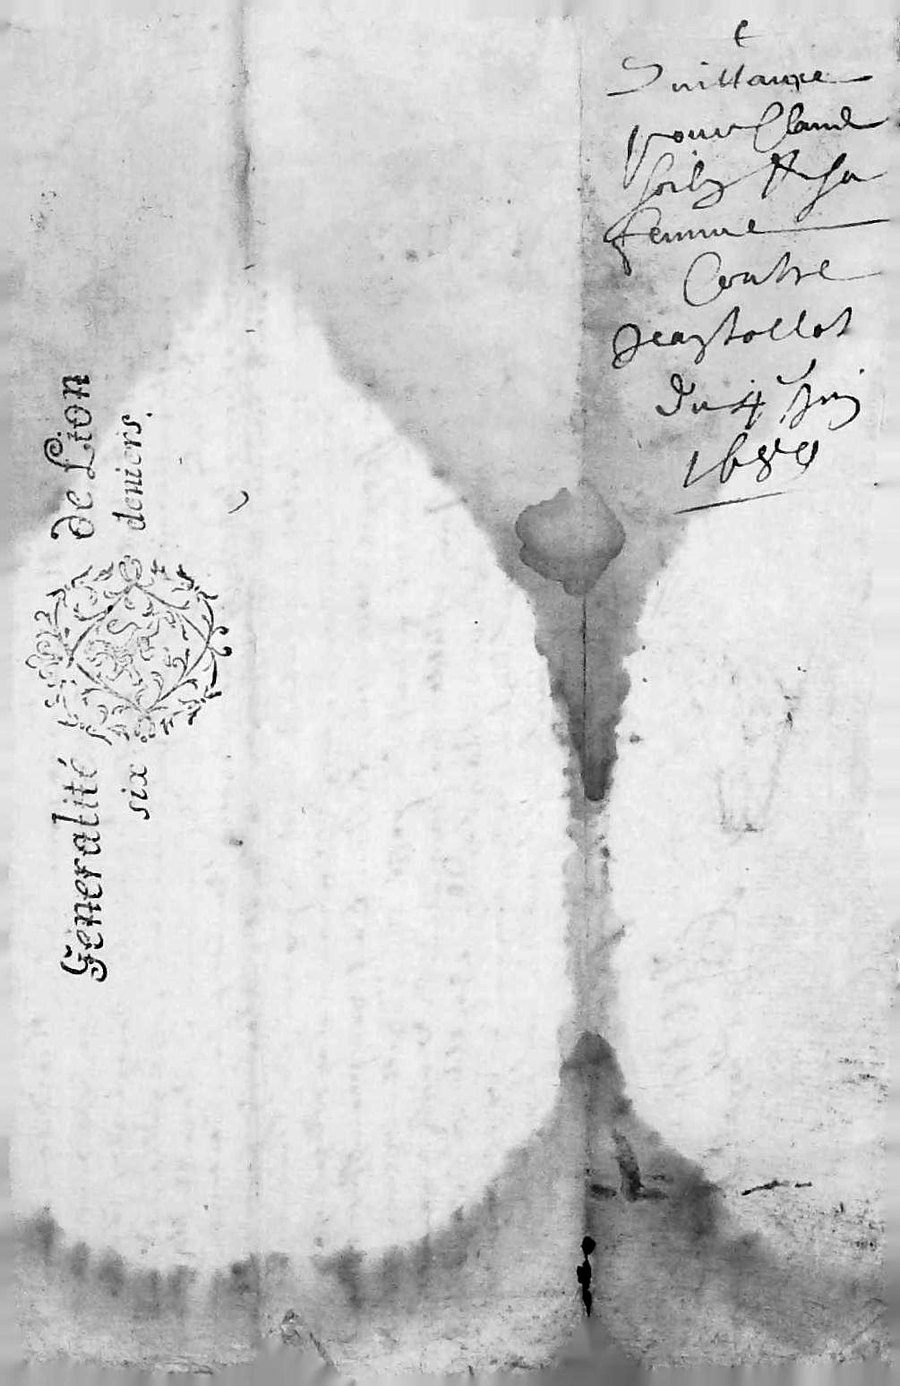 Quittance
pour Claude
et sa
femme
Contre
Jean tollot
du 4e Juin
1689
Generalité de Lion
six deniers.